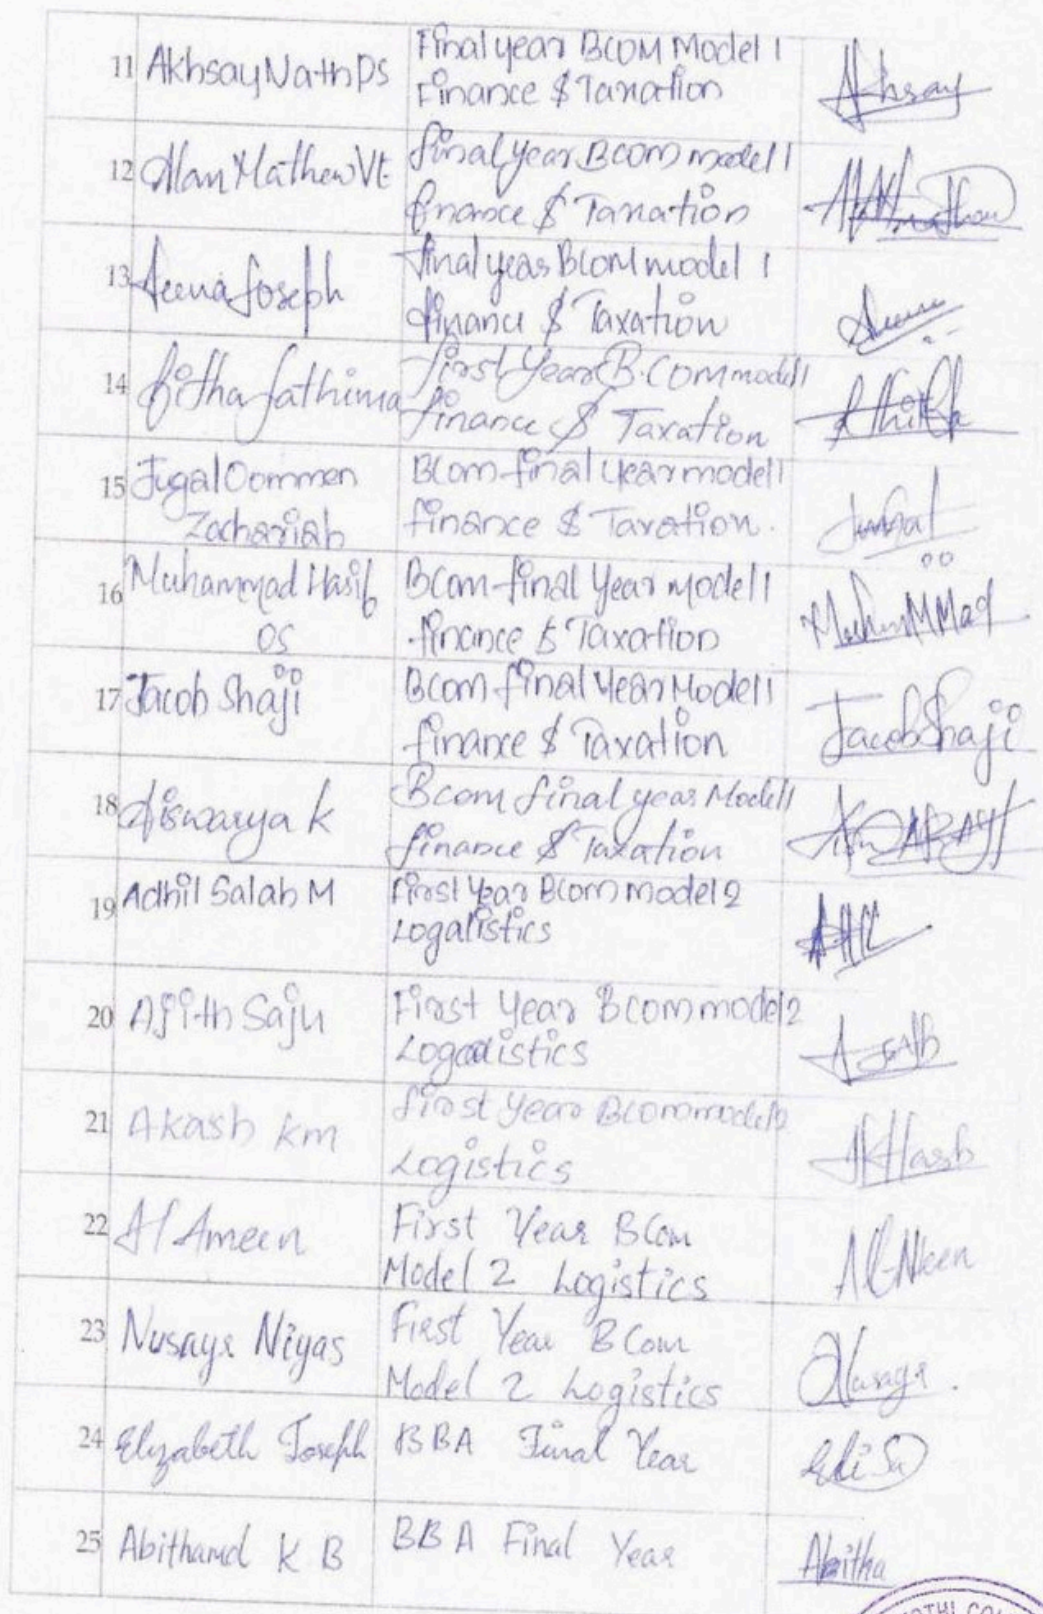 11 Akhsay Nath Ps Final year BCOM Model 1 Akhsay
Finance & Taxation
12 Alan Mathew Vt final year BCOM model 1
finance & Taxation
13 Leena Joseph final year BCOM model 1
finance & Taxation
14 fitha fathima first Year B.COM model 1
finance & Taxation
15 Jugal Oommen BCom final year model 1
Zachariah finance & Taxation.
16 Muhammad Hasib BCom final Year model 1 MuhamMMad
OS finance & Taxation
17 Jacob Shaji BCom final Year Model 1 Jacob Shaji
finance & Taxation
18 Aiswarya k Bcom final year Model 1
finance & Taxation
19 Adhil Salah M First Year BCom model 2
Logalistics
20 Ajith Saju First Year BCom model 2
Logadistics
21 Akash km first Year BCom model 2 AKHash
Logistics
22 Al Ameen First Year BCom
Model 2 Logistics
23 Nusaya Niyas First Year BCom Nusaya.
Model 2 Logistics
24 Elizabeth Joseph BBA Final Year
25 Abithamol K B BBA Final Year Abitha